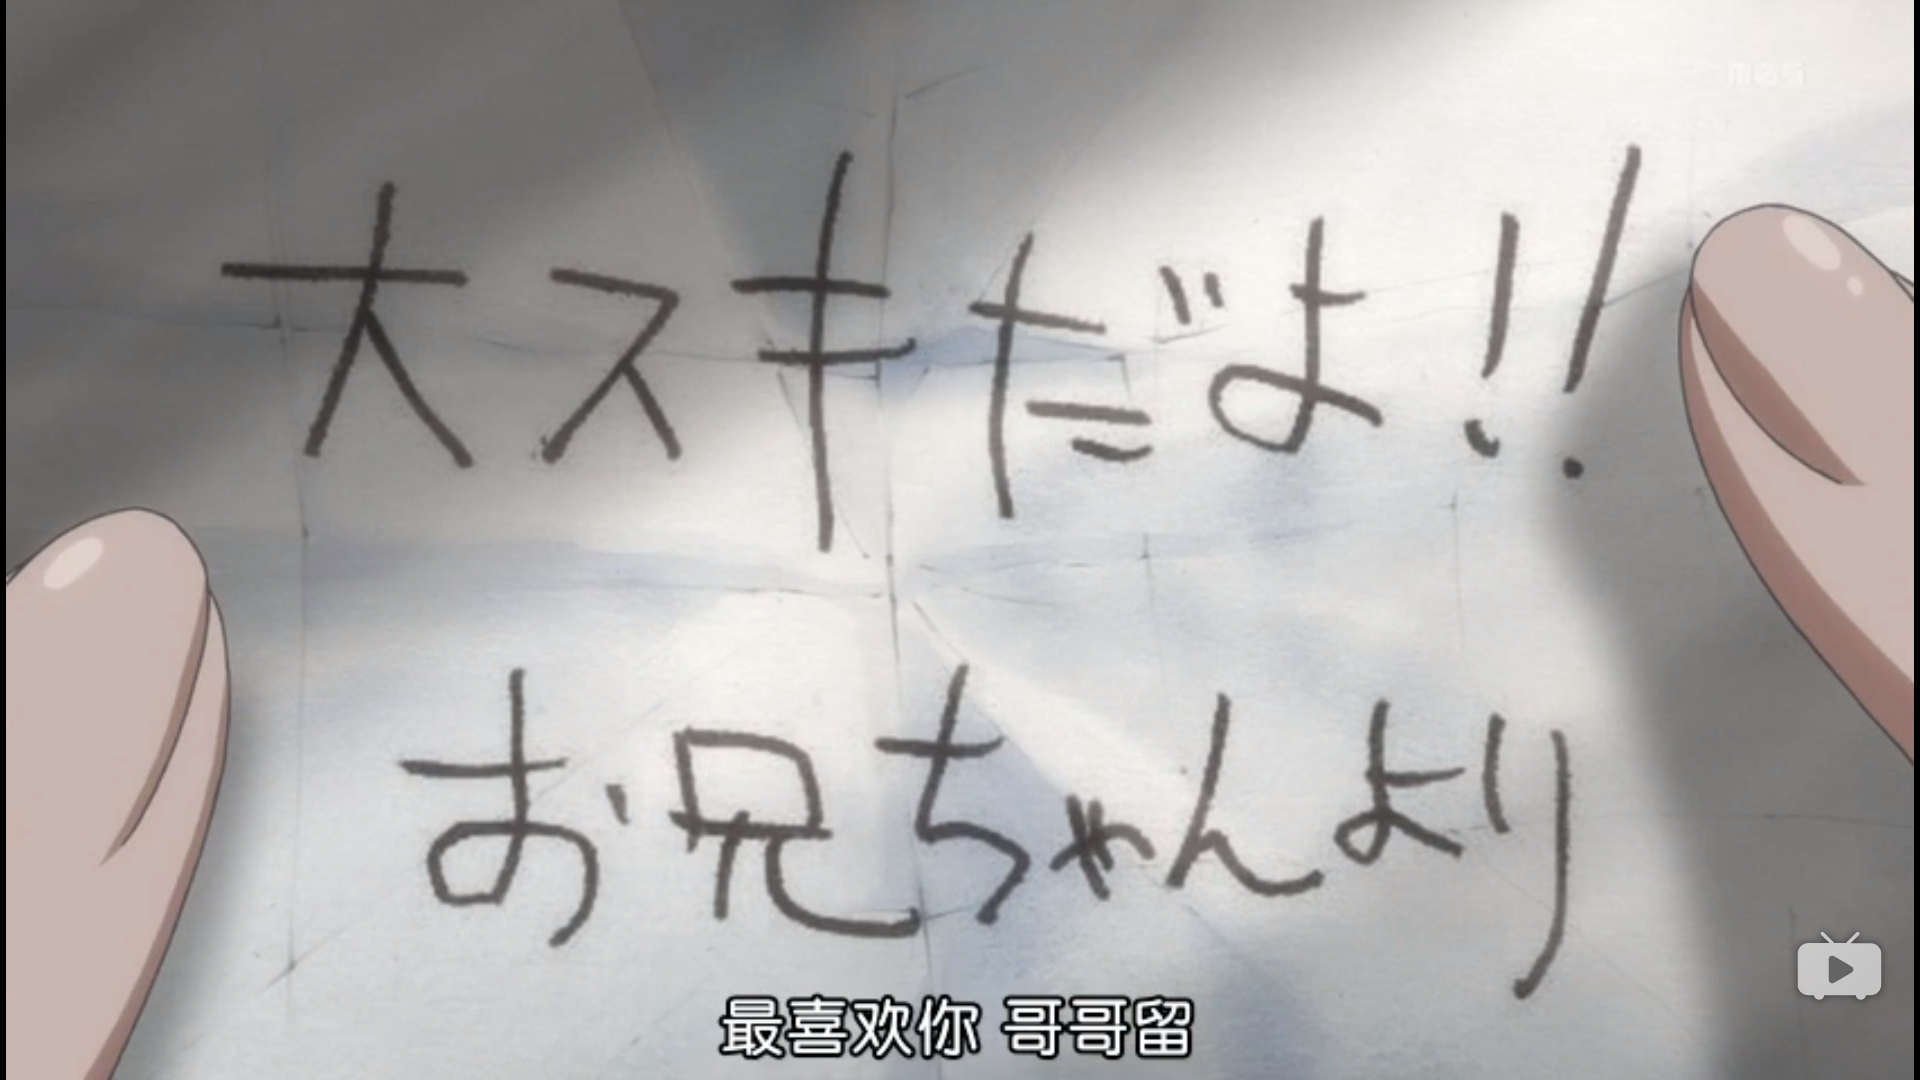 大スキだよ!!
お兄ちゃんより
最喜欢你 哥哥留